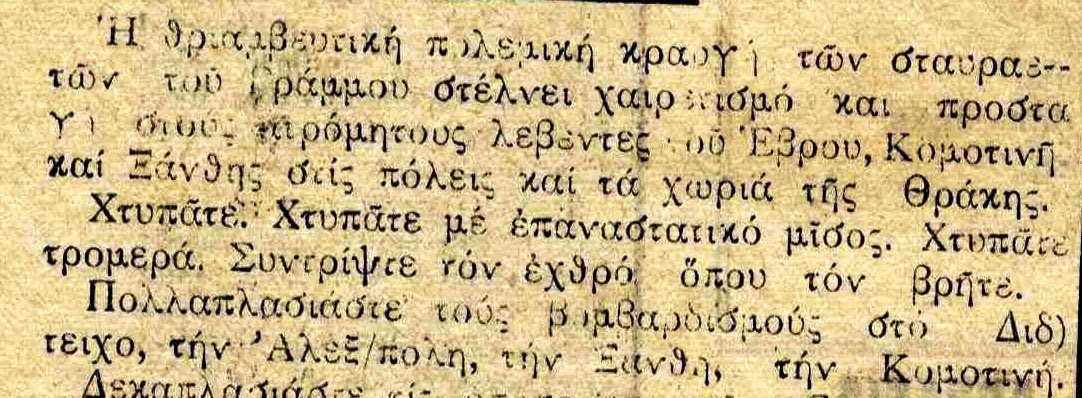 Ἡ θριαμβευτική πολεμική κραυγή τῶν σταυραε--
τῶν τοῦ Γράμμου στέλνει χαιρετισμό και προστα
γή στούς ἀτρόμητους λεβέντες τοῦ Ἕβρου, Κομοτινῆ
καί Ξάνθης στίς πόλεις καί τά χωριά τῆς Θράκης.
Χτυπᾶτε. Χτυπᾶτε μέ ἐπαναστατικό μῖσος. Χτυπᾶτε
τρομερά. Συντρίψτε τόν ἐχθρό ὅπου τόν βρῆτε.
Πολλαπλασιάστε τούς βομβαρδισμούς στό Διδ)
τειχο, τήν Ἀλεξ/πολη, τήν Ξάνθη, τήν Κομοτινή.
Δεκαπλασιάστε τίς